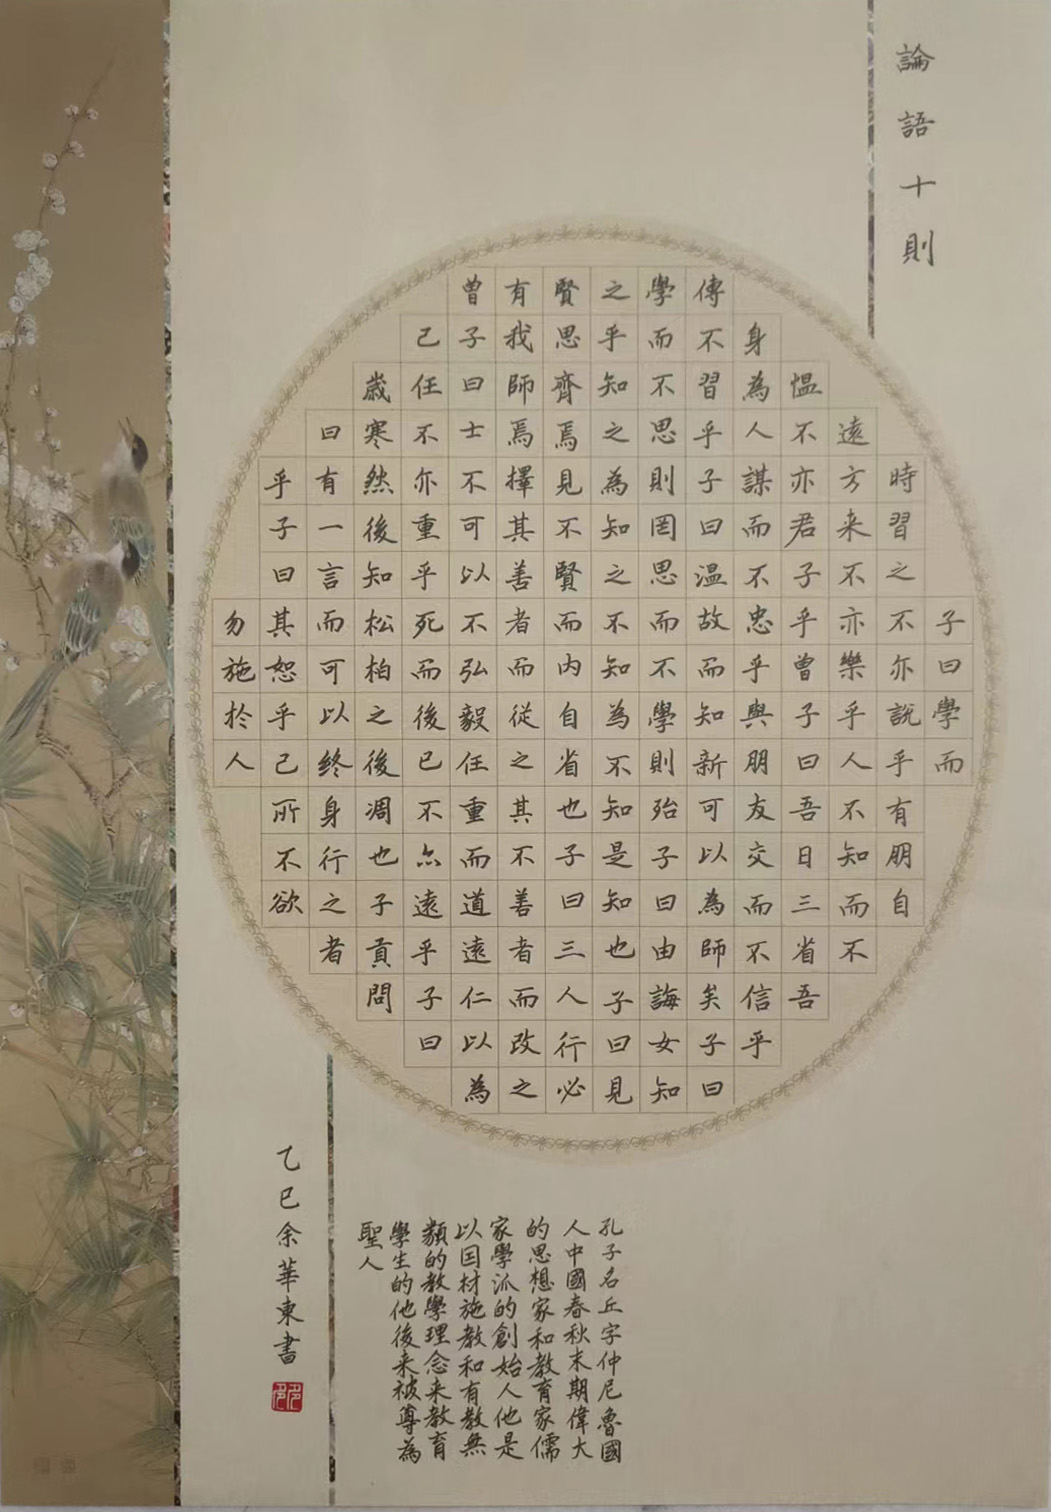 論語十則
子曰學而
時習之不亦說乎有朋自
遠方来不亦樂乎人不知而不
愠不亦君子乎曾子曰吾日三省吾
身為人謀而不忠乎與朋友交而不信乎
傳不習乎子曰温故而知新可以為師矣子曰
學而不思則罔思而不學則殆子曰由誨女知
之乎知之為知之不知為不知是知也子曰見
賢思齊焉見不賢而内自省也子曰三人行必
有我師焉擇其善者而從之其不善者而改之
曾子曰士不可以不弘毅任重而道遠仁以為
己任不亦重乎死而後已不亦遠乎子曰
歲寒然後知松柏之後凋也子貢問
曰有一言而可以終身行之者
乎子曰其恕乎己所不欲
勿施於人
孔子名丘字仲尼魯國
人中國春秋末期偉大
的思想家和教育家儒
家學派的創始人他是
以因材施教和有教無
類的教學理念来教育
學生的他後来被尊為
聖人
乙巳余華東書